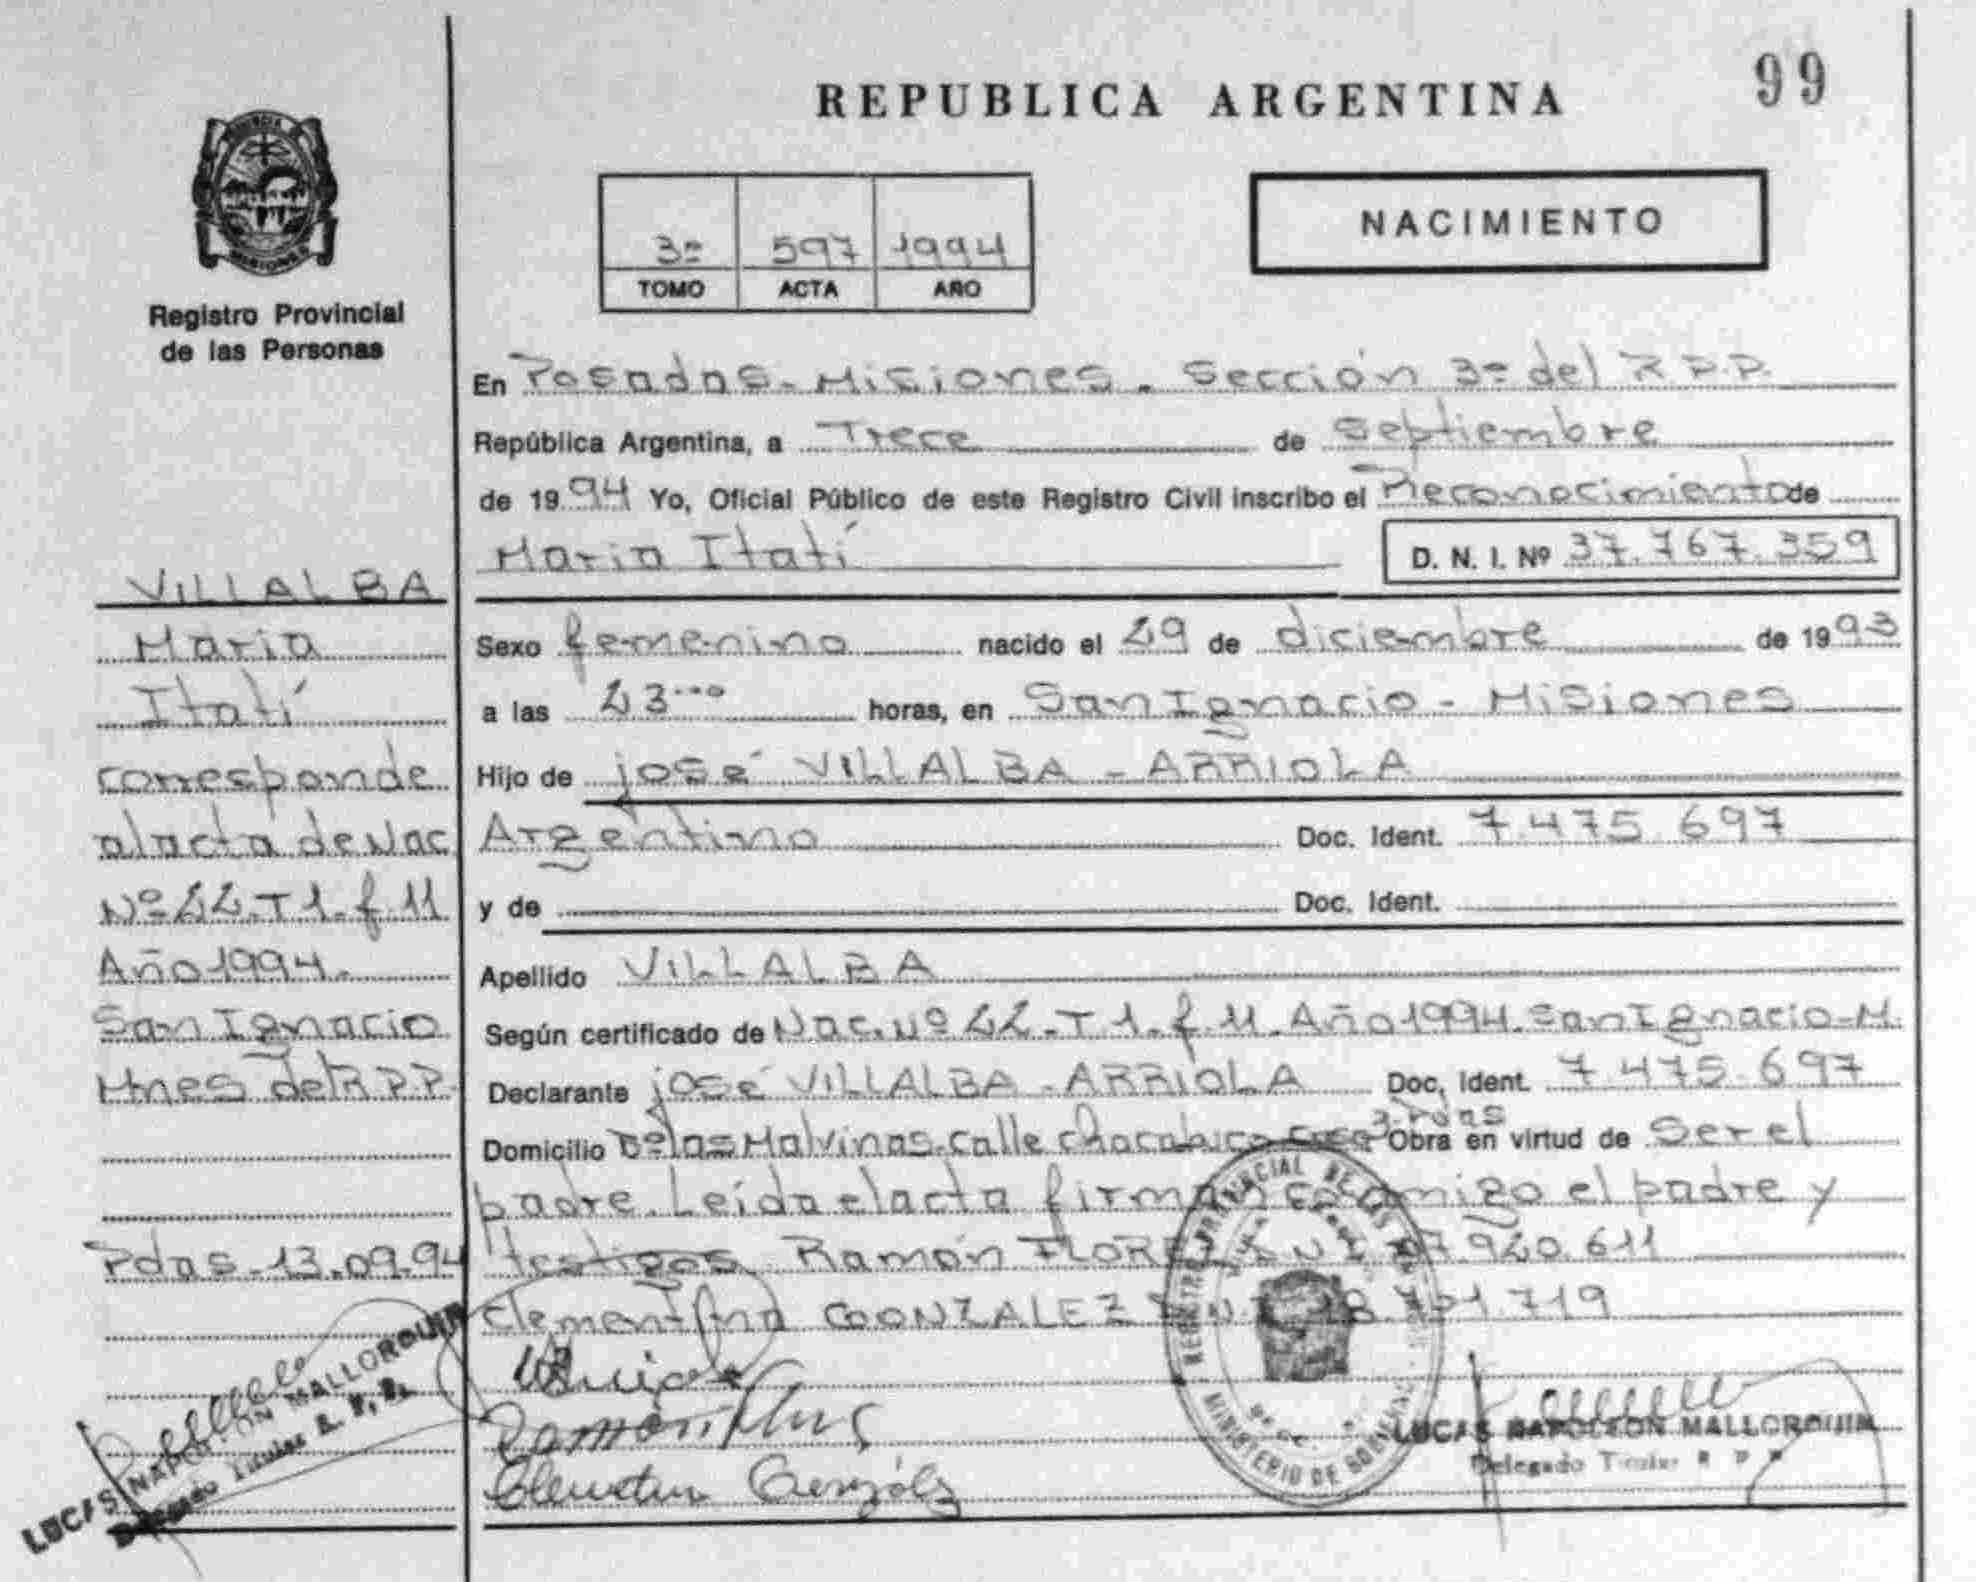 99
REPUBLICA ARGENTINA
NACIMIENTO
3º 597 1994
TOMO ACTA AÑO
PROVINCIA DE
MISIONES
Registro Provincial
de las Personas
En Posadas - Misiones - Sección 3º del R.P.P.
República Argentina, a Trece de septiembre
de 1994 Yo, Oficial Público de este Registro Civil inscribo el Reconocimiento de
Maria Itatí D. N. I. Nº 37.767.359
Sexo femenino nacido el 29 de diciembre de 1993
a las 23 horas, en San Ignacio - Misiones
Hijo de josé VILLALBA - ARRIOLA
Argentino Doc. Ident. 7.475.697
y de Doc. Ident.
Apellido VILLALBA
Según certificado de Nac. Nº 22 - T 1 - f. 11. Año 1994. San Ignacio - M.
Declarante josé VILLALBA - ARRIOLA Doc. Ident. 7.475.697
Domicilio Bº las Malvinas - calle chacabuco casa 3 Pdas Obra en virtud de Ser el
padre. Leída el acta firman conmigo el padre y
testigos Ramón FLORES D.N.I. 07.920.611
Clementina GONZALEZ D.N.I. 18.721.719
Ramón
González
REGISTRO PROVINCIAL DE LAS PERSONAS
MINISTERIO DE GOBIERNO
LUCAS NAPOLEON MALLORQUIN
Delegado Titular R P P
VILLALBA
Maria
Itatí
corresponde
al acta de Nac
Nº 22 - T 1 - f. 11
Año 1994.
San Ignacio
Mnes del R.P.P.
Pdas - 13.09.94
LUCAS NAPOLEON MALLORQUIN
Delegado Titular R. P. P.